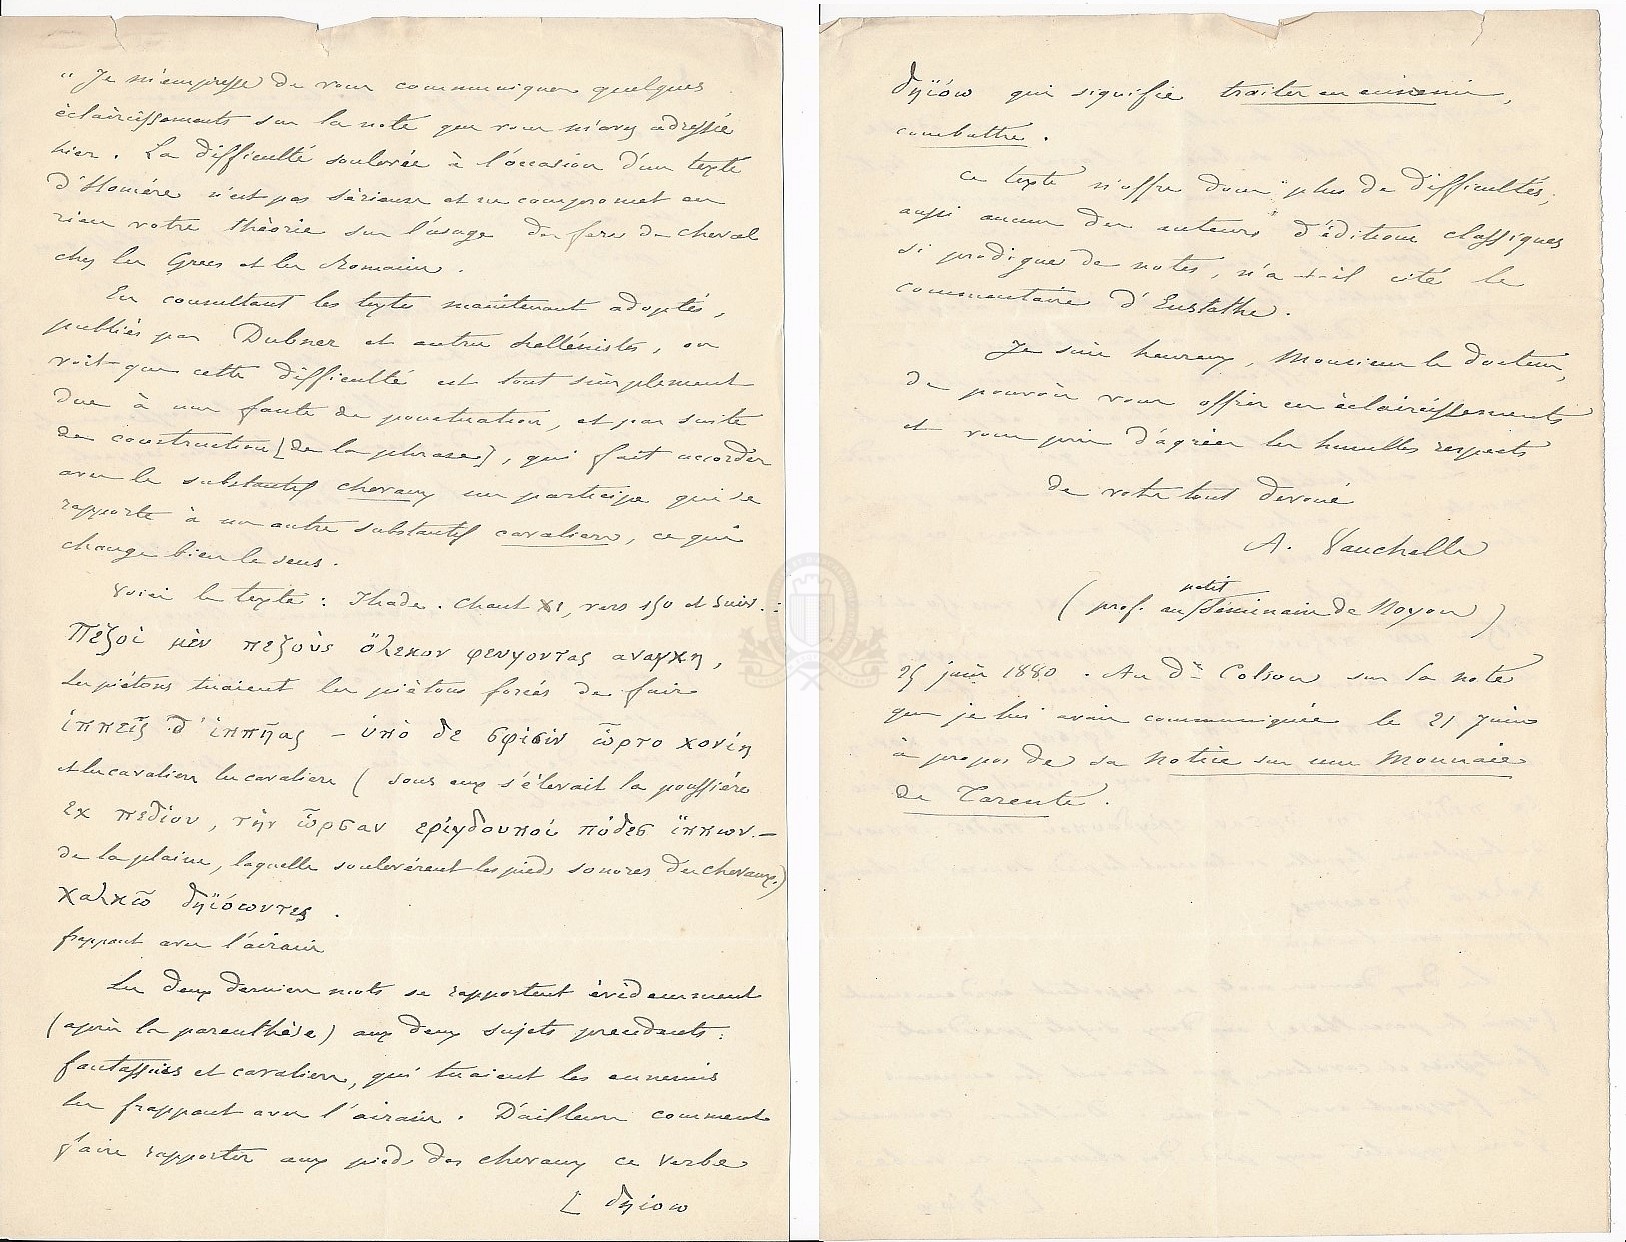 " Je m'empresse de vous communiquer quelques
éclaircissements sur la note que vous m'avez adressée
hier. La difficulté soulevée à l'occasion d'un texte
d'Homère n'est pas sérieuse et ne compromet en
rien votre théorie sur l'usage des fers de cheval
chez les Grecs et les Romains.
En consultant les textes maintenant adoptés,
publiés par Dubner et autres hellénistes, on
voit que cette difficulté est tout simplement
due à une faute de ponctuation, et par suite
de construction [de la phrase], qui fait accorder
avec le substantif chevaux un participe qui se
rapporte à un autre substantif cavaliers, ce qui
change bien le sens.
Voici le texte : Iliade. Chant XI, vers 150 et suiv. :
Πεζοὶ μὲν πεζοὺς ὄλεκον φευγοντας αναγκη,
Les piétons tuaient les piétons forcés de fuir
ἱππεῖς δ' ἱππῆας – ὑπὸ δε σφίσιν ὦρτο κονίη
et les cavaliers les cavaliers ( sous eux s'élevait la poussière
εκ πεδίου, τὴν ὦρσαν ερίγδουποι πόδες ἵππων.–
de la plaine, laquelle soulevèrent les pieds sonores des chevaux.)
χαλκῶ δηϊόωντες .
frappant avec l'airain
Les deux derniers mots se rapportent évidemment
(après la parenthèse) aux deux sujets précédents :
fantassins et cavaliers, qui tuaient les ennemis
les frappant avec l'airain. D'ailleurs comment
faire rapporter aux pieds des chevaux ce verbe
[ δηιοω
δηϊόω qui signifie traiter en ennemi,
combattre.
Ce texte n'offre donc plus de difficultés;
aussi aucun des auteurs d'éditions classiques
si prodigues de notes, n'a-t-il cité le
commentaire d'Eustathe.
Je suis heureux, Monsieur le docteur,
de pouvoir vous offrir ces éclaircissements
et vous prie d'agréer les humbles respects
de votre tout dévoué
A. Vauchelle
( prof. au petit Séminaire de Noyon )
25 juin 1880. Au Dr Colson sur la note
que je lui avais communiquée le 21 juin
à propos de sa Notice sur une Monnaie
de Tarente.